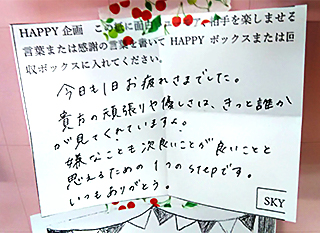 HAPPY 企画 この紙に面白 相手を楽しませる
言葉または感謝の言葉を書いて HAPPY ボックスまたは回
収ボックスに入れてください。
今日も1日お疲れさまでした。
貴方の頑張りや優しさは、きっと誰か
が見てくれていますよ。
嫌なことも次良いことが良いことと
思えるための1つのstepです。
いつもありがとう。
SKY